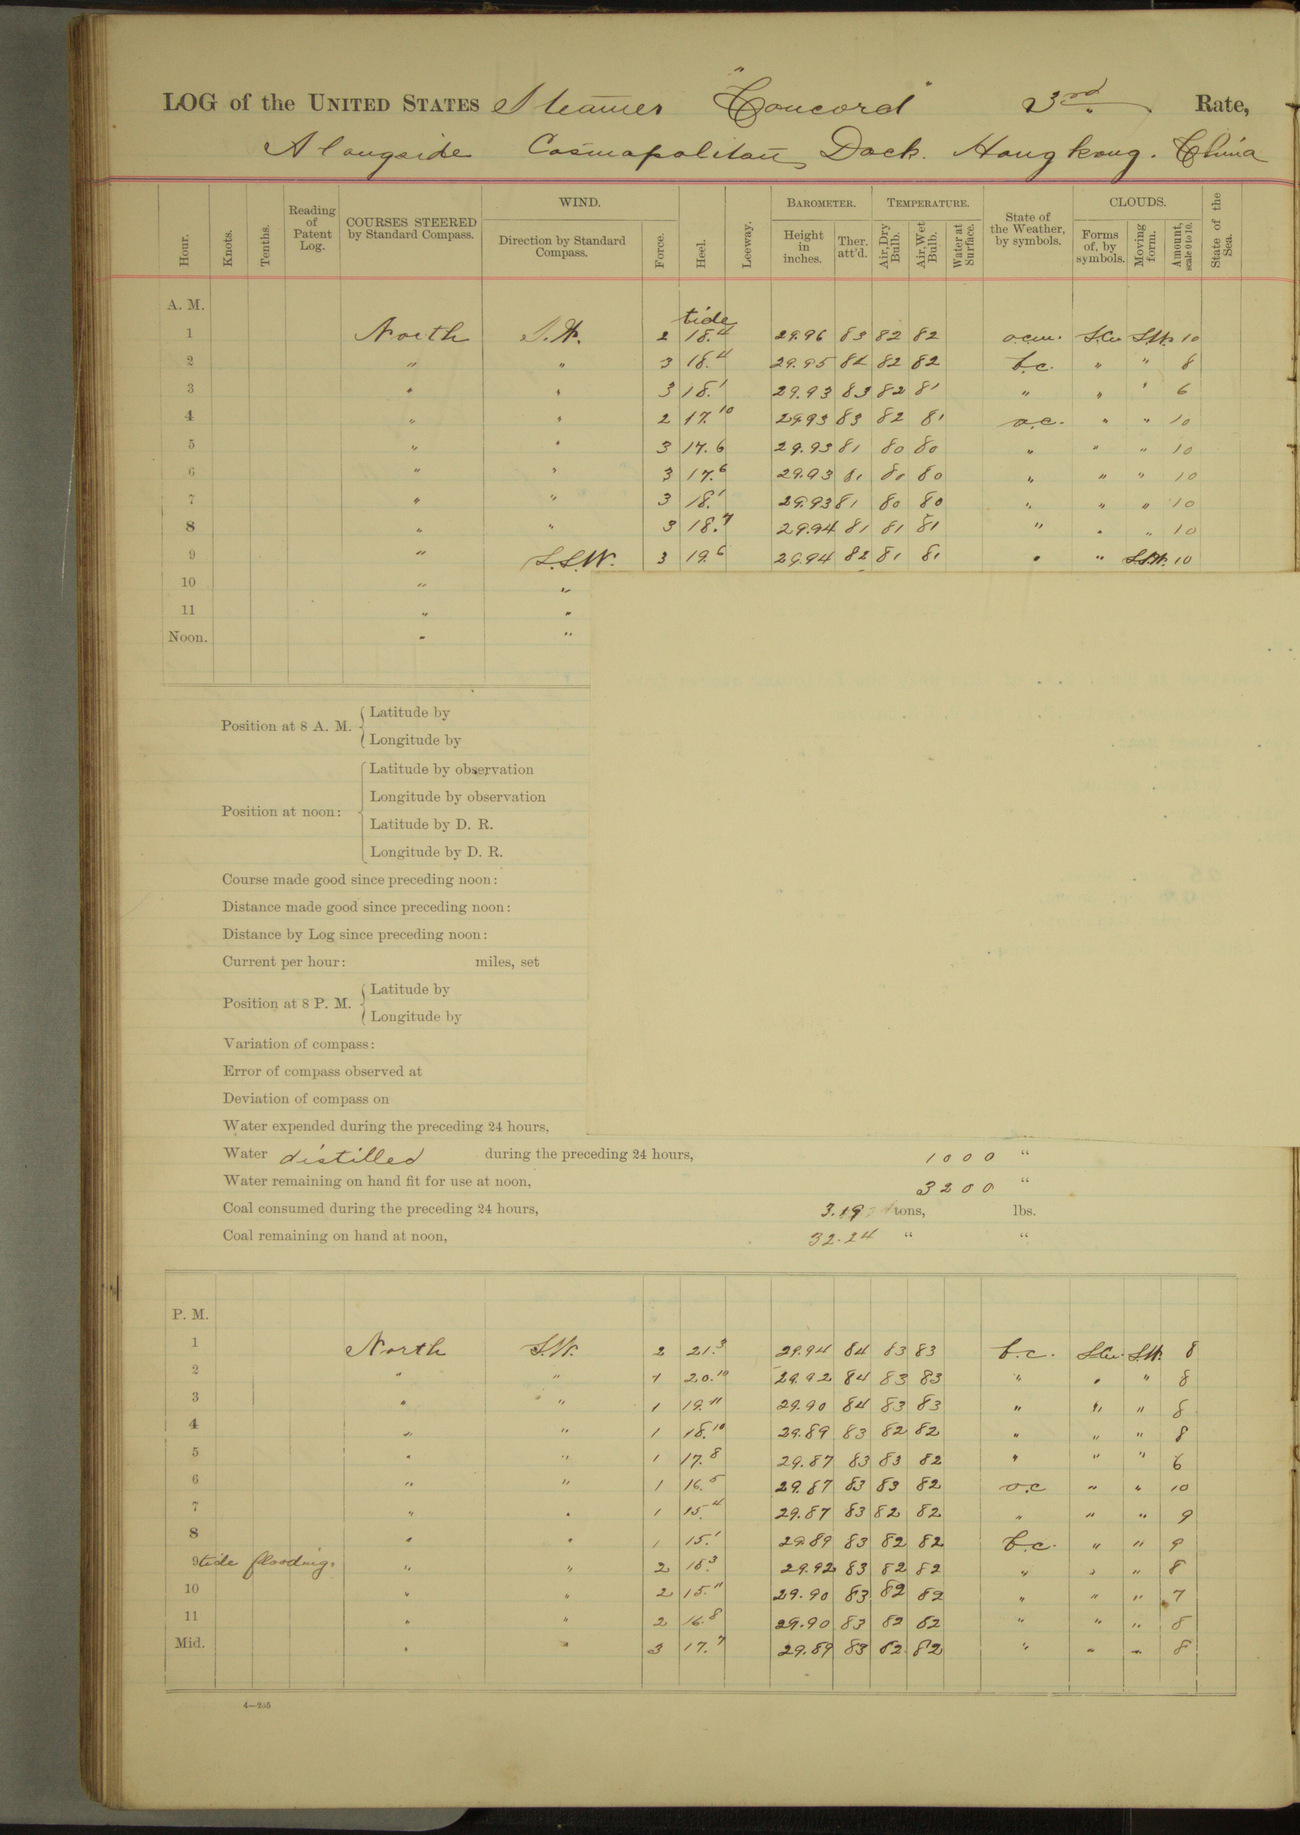 LOG of the UNITED STATES Steamer "Concord" 3rd Rate,
Alongside Cosmopolitan Dock. Hongkong. China
Hour. Knots. Tenths. Reading of Patent Log. COURSES STEERED by Standard Compass. WIND. Direction by Standard Compass. Force. Heel. Leeway. BAROMETER. Height in inches. Ther. att'd. TEMPERATURE. Air, Dry Bulb. Air, Wet Bulb. Water at Surface. State of the Weather, by symbols. CLOUDS. Forms of, by symbols. Moving form. Amount, scale 0 to 10. State of the Sea.
A. M.
tide
1 North S.W. 2 18.4 29.96 83 82 82 o.c.m. S.Cu. S.W. 10
2 " " 3 18.4 29.95 82 82 82 b.c. " " 8
3 " " 3 18.1 29.93 83 82 81 " " " 6
4 " " 2 17.10 29.93 83 82 81 o.c. " " 10
5 " " 3 17.6 29.93 81 80 80 " " " 10
6 " " 3 17.6 29.93 81 80 80 " " " 10
7 " " 3 18.1 29.93 81 80 80 " " " 10
8 " " 3 18.7 29.94 81 81 81 " " " 10
9 " S.S.W. 3 19.6 29.94 82 81 81 " " S.S.W. 10
10 " "
11 " "
Noon. " "
Position at 8 A. M. Latitude by
Longitude by
Position at noon: Latitude by observation
Longitude by observation
Latitude by D. R.
Longitude by D. R.
Course made good since preceding noon:
Distance made good since preceding noon:
Distance by Log since preceding noon:
Current per hour: miles, set
Position at 8 P. M. Latitude by
Longitude by
Variation of compass:
Error of compass observed at
Deviation of compass on
Water expended during the preceding 24 hours,
Water distilled during the preceding 24 hours, 1000 "
Water remaining on hand fit for use at noon, 3200 "
Coal consumed during the preceding 24 hours, 3.19 tons, lbs.
Coal remaining on hand at noon, 32.24 " "
P. M.
1 North S.W. 2 21.3 29.94 84 83 83 b.c. S.Cu. S.W. 8
2 " " 1 20.10 29.92 84 83 83 " " " 8
3 " " 1 19.11 29.90 84 83 83 " " " 8
4 " " 1 18.10 29.89 83 82 82 " " " 8
5 " " 1 17.8 29.87 83 83 82 " " " 6
6 " " 1 16.5 29.87 83 83 82 o.c " " 10
7 " " 1 15.4 29.87 83 82 82 " " " 9
8 " " 1 15.1 29.89 83 82 82 b.c. " " 9
9 tide flooding. " " 2 15.3 29.92 83 82 82 " " " 8
10 " " 2 15.11 29.90 83 82 82 " " " 7
11 " " 2 16.8 29.90 83 82 82 " " " 8
Mid. " " 3 17.7 29.89 83 82 82 " " " 8
4—255